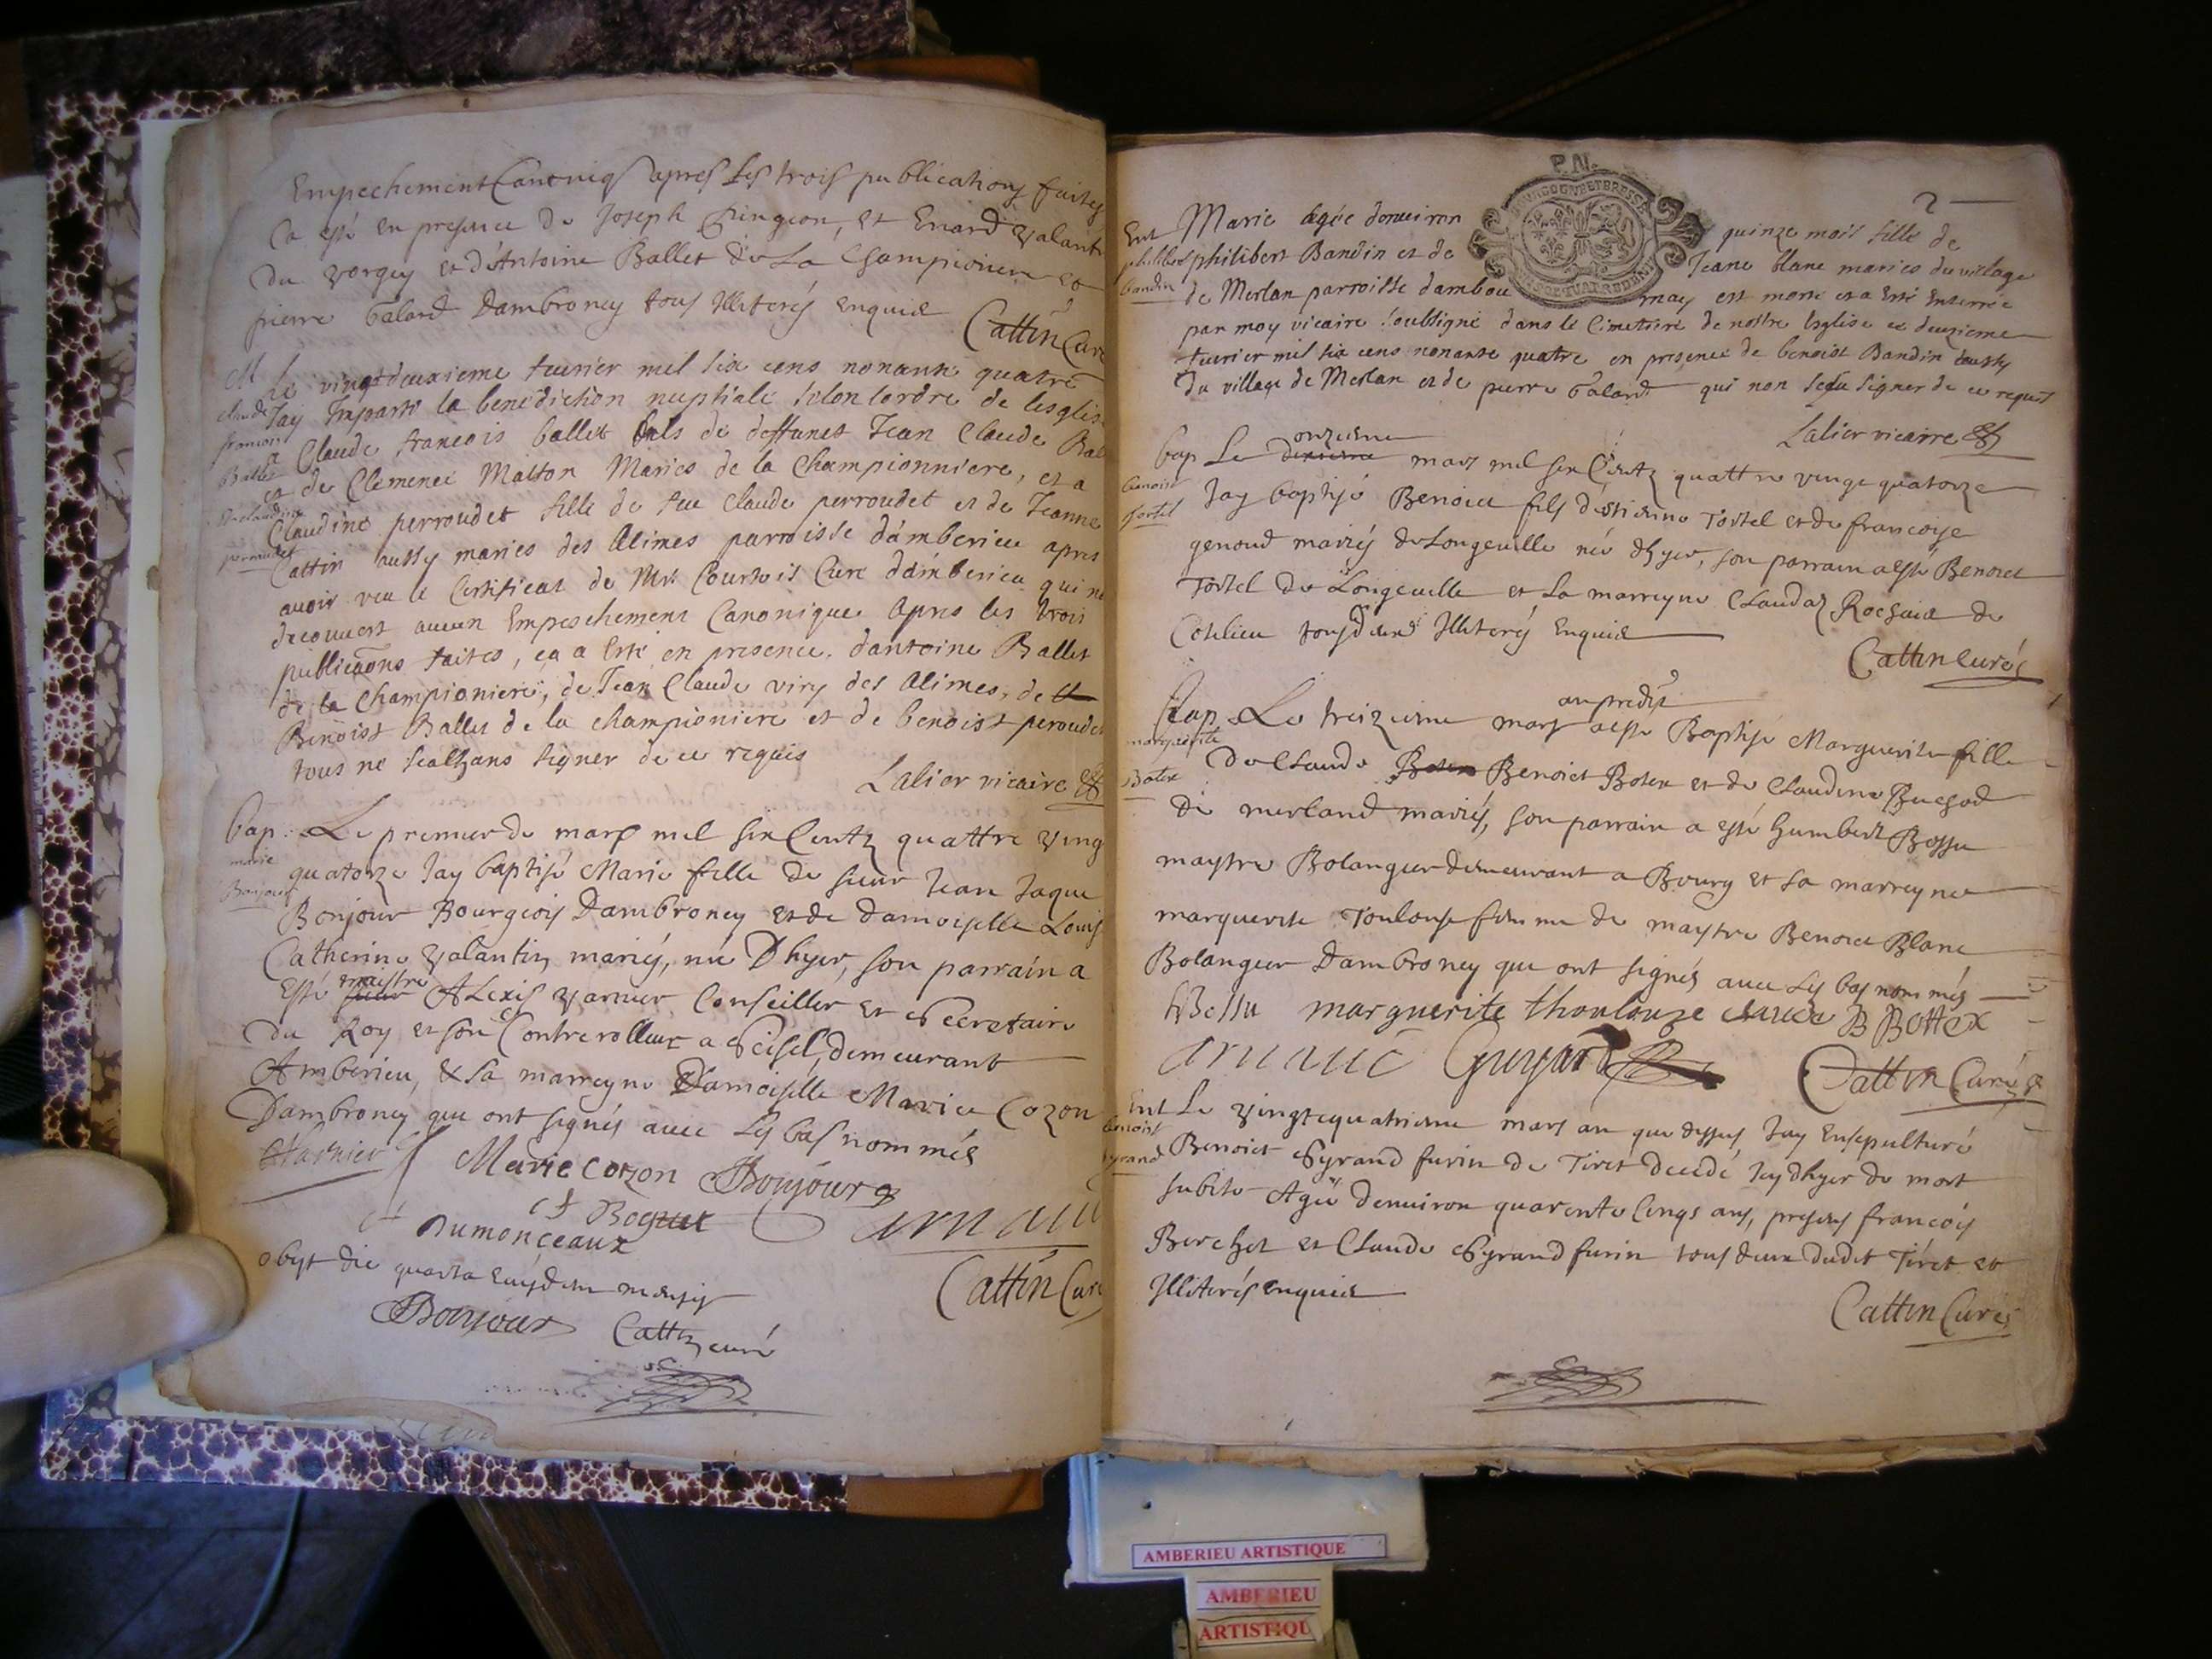 Empechement Canoniq apres les trois publications faites
Ca esté en presence de Joseph Pingeon, et Enard Valant
Du Vorgey et d'Antoine Ballet de La Championiere et
pierre Galard Dambroney tous Illiterés Enquis
Cattin Curé
M
Le vingtdeuxieme feurier mil six cens nonante quatre
Jay Imparti la benediction nuptiale selon lordre de leglis
a Claude francois ballet fils de deffunct Jean Claude Bal
et de Clemence Maiton Maries de la Championniere, et a
Claudine perroudet fille de feu Claude perroudet et de Jeanne
Cattin aussy maries des Alimes parroisse d'amberieu apres
avoir veu le Certificat de Mr. Courtois Curé d'amberieu qui n'a
decouvert aucun Empeschement Canonique apres les trois
publicãons faites, ca a Esté en presence, dantoine Ballet
de la Championiere, de Jean Claude viry des Alimes, de
Benoist Ballet de la championiere et de benoist peroudet
tous ne scachans signer de ce requis
Lalier vicaire
claude
francois
Ballet
et claudine
perroudet
bap. Le premier de mars mil six Centz quattre Ving
quatorze Jay baptisé Marie fille de sieur Jean Jaque
Bonjour Bourgeois Dambroney et de damoiselle Louis
Catherine Valantin mariés, née Dhyer, son parrain a
Esté maistre Alexis Varnier Conseiller et Secretaire
du Roy et son Contrerolleur a Seisel, demeurant
Amberieu, & sa marreyne Damoiselle Marie Cozon
Dambroney qui ont signés avec Les bas nommés
marie
Bonjour
Varnier Marie Cozon Bonjour
Boguet
Dumonceaux
arnaud
obyt die quarta Eiusdem mensis
Cattin Curé
Bonjour Cattin curé
P.N.
BOURGOGNE ET BRESSE
2
Ent Marie agée denuiron quinze mois fille de
philibert Bandin et de Jeane blanc maries du village
de Merlan parroisse dambournay est morte et a Esté Enterrée
par moy vicaire soubsigné dans le Cimetiere de nostre Esglise ce deuxieme
feurier mil six cens nonante quatre en presence de benoist Bandin aussy
du village de Merlan et de pierre Galard qui non sceu signer de ce requis
Lalier vicaire
philibert
bandin
bap Le onzieme mars mil six Centz quattre vingt quatorze
Jay baptisé Benoict fils d'estienne Tortel et de francoise
genoud mariés de Longeville né dhyer, son parrain a esté Benoict
Tortel de Longeville et La marreyne Claudaz Rochaix de
Cotelieu tous deux Illiterés Enquis
Cattin Curés
benoist
tortel
Bap. Le treizieme mars an predit a esté Baptisé Marguerite fille
De Claude Benoict Botex et de Claudine Buchod
de merland mariés, son parrain a esté humbert Bossu
maystre Bolangier demeurant a Bourg et sa marreyne
marguerite Toulouse femme de maystre Benoict Blanc
Bolangeur Dambroney qui ont signés avec Les bas nommés
marguerite
Botex
hBossu marguerite thoulouze B Bottex
arnaud Guyard
Cattin Curé
Ent Le Vingtequatrieme mars an que dessus Jay Ensepulturé
Benoict Syrand furin de Tiret decedé Jeydhyer de mort
subite Agé denuiron quarente Cinqs ans, presens francois
Berchet et Claude Syrand furin tous deux dudit Tiret et
Illiterés enquis
Cattin Curés
benoist
syrand
AMBERIEU ARTISTIQUE
AMBERIEU
ARTISTIQU